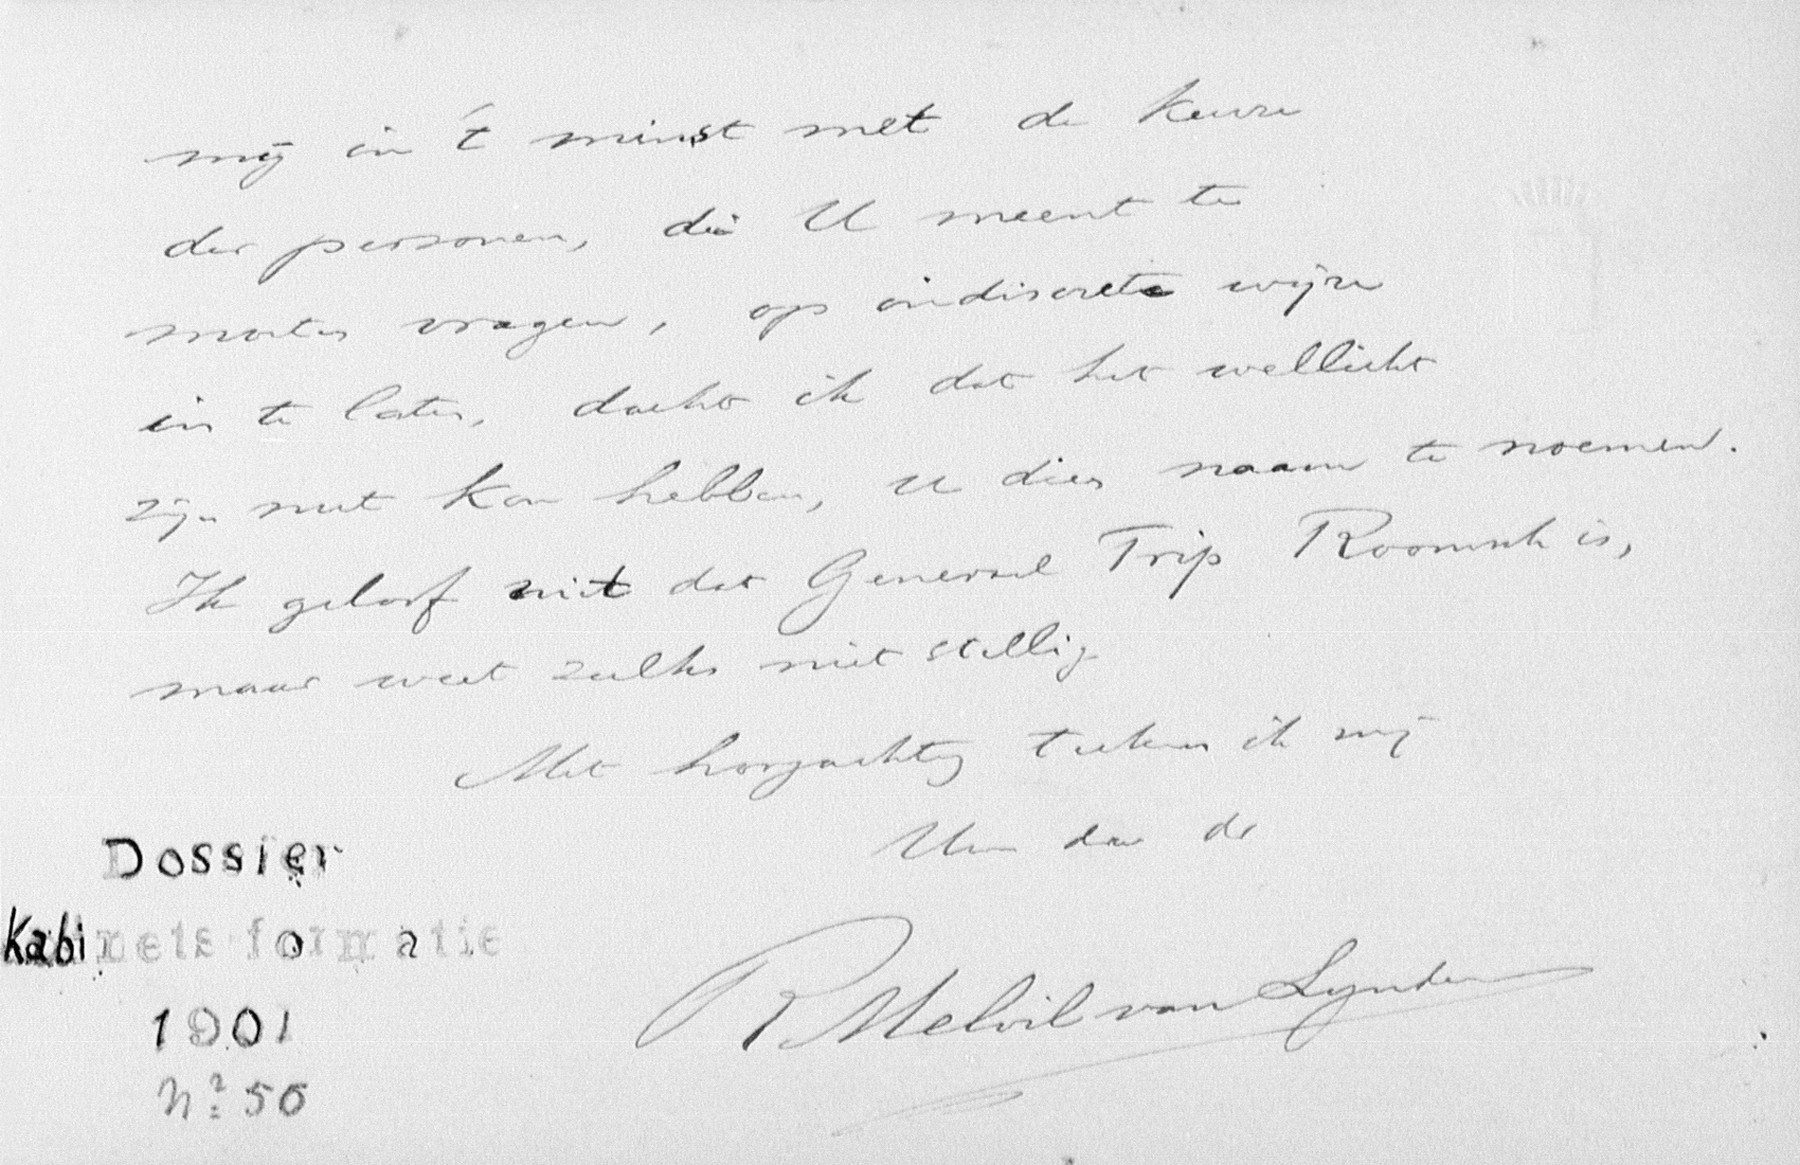 mij in 't minst met de keuze
der personen, die U meent te
moeten vragen, op indiscrete wijze
in te laten, dacht ik dat het wellicht
zijn nut kon hebben, U dien naam te noemen.
Ik geloof niet dat Generaal Trip Roomsch is,
maar weet zulks niet stellig
Met hoogachting teeken ik mij
Uw dw dr
R Melvil van Lynden
Dossier
Kabinetsformatie
1901
No 56